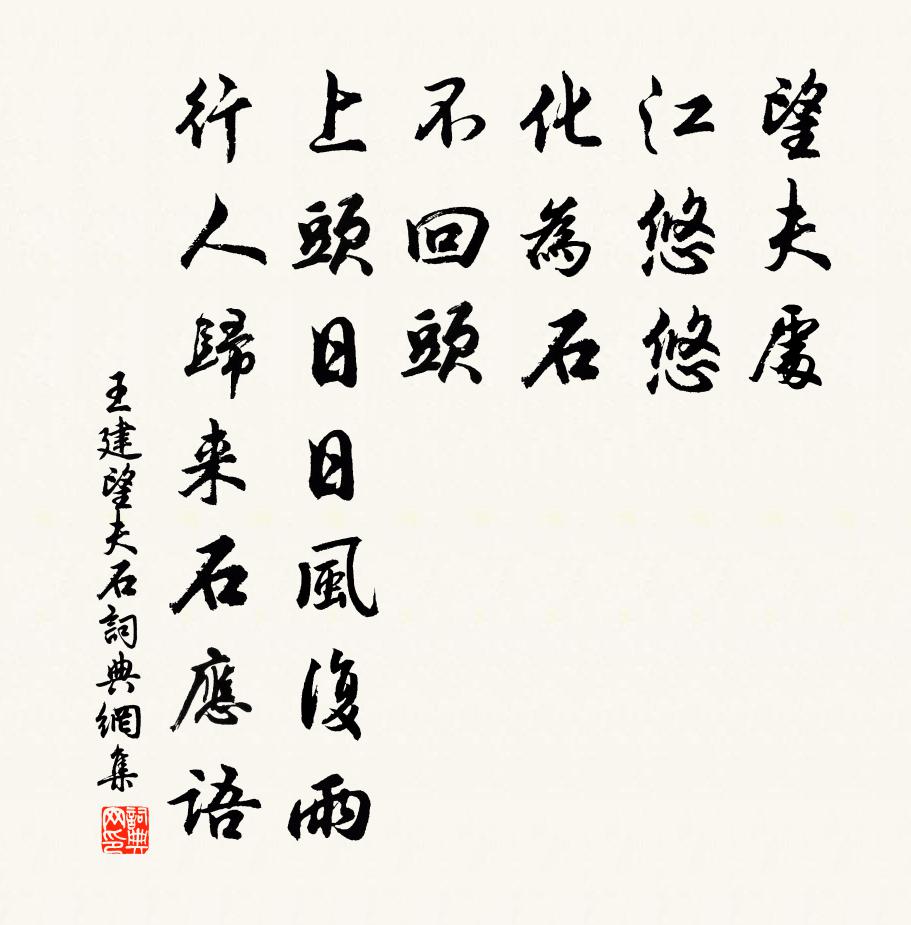 望夫處
江悠悠
化為石
不回頭
上頭日日風復雨
行人歸来石應語
王建望夫石詞典網集
詞典网印